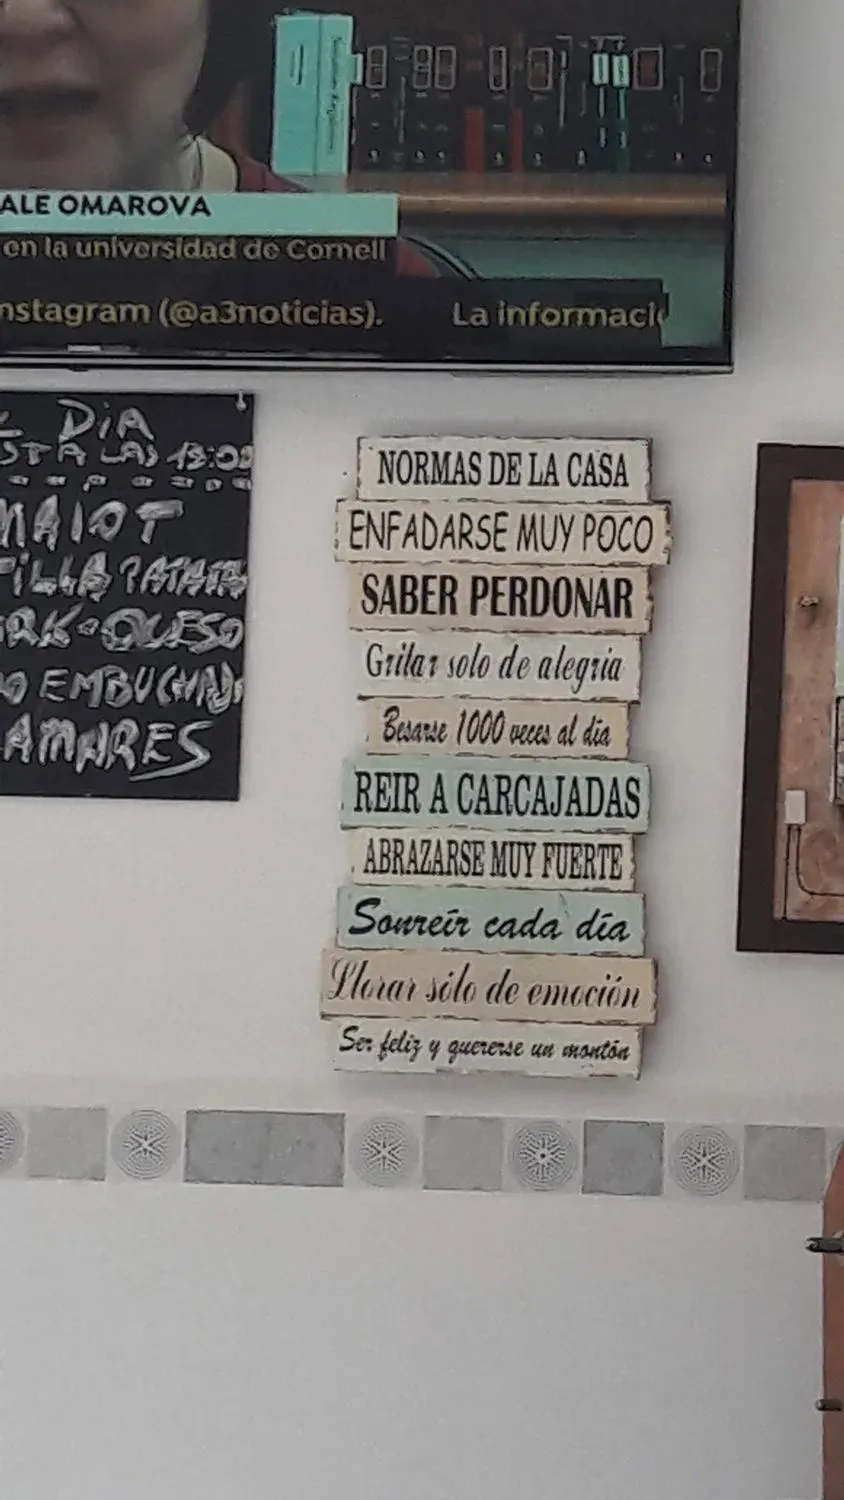 ALE OMAROVA
en la universidad de Cornell
nstagram (@a3noticias). La informaci
DIA
STA LAS 12:00
MAIOT
TILLA PATATA
RK-QUESO
O EMBUCHADO
AMARES
NORMAS DE LA CASA
ENFADARSE MUY POCO
SABER PERDONAR
Gritar solo de alegria
Besarse 1000 veces al dia
REIR A CARCAJADAS
ABRAZARSE MUY FUERTE
Sonreír cada día
Llorar sólo de emoción
Ser feliz y quererse un montón